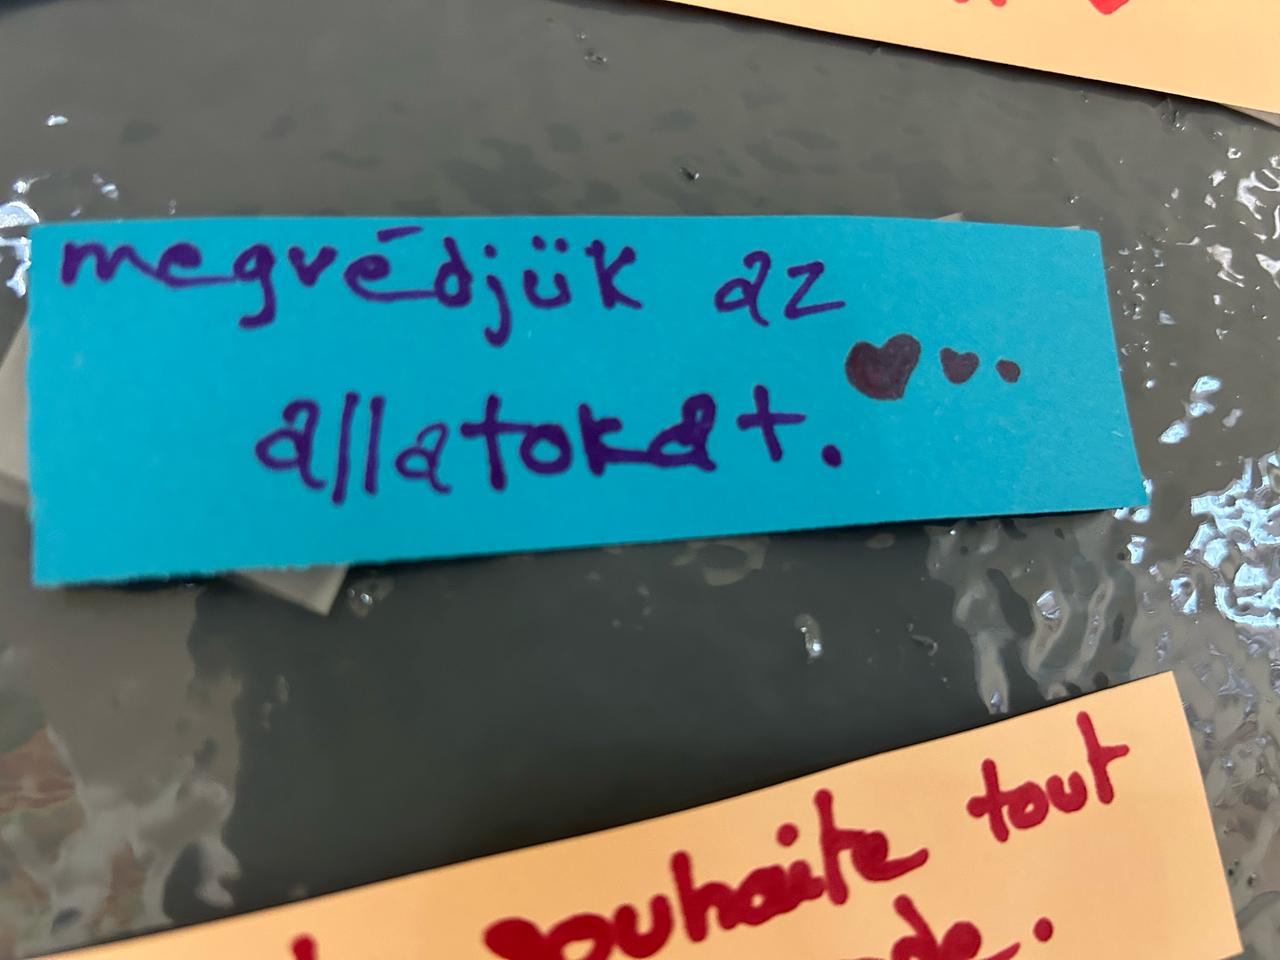 megvédjük az
allatokat.
souhaite tout